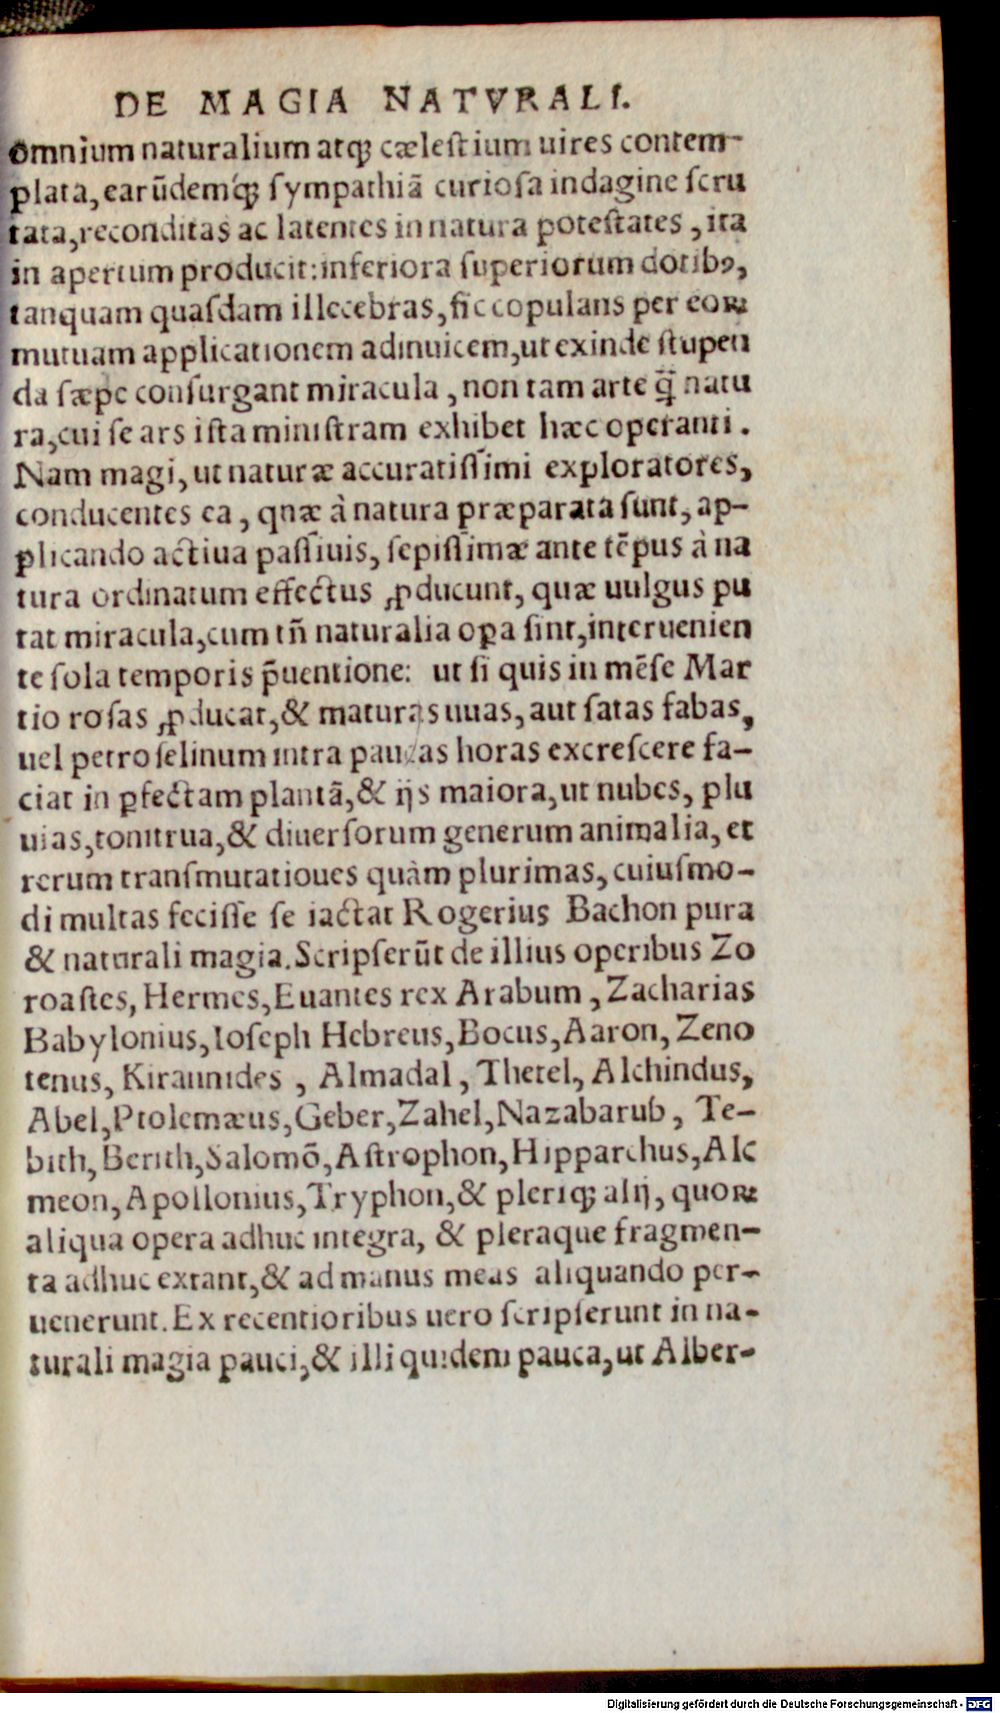 DE MAGIA NATVRALI.
omnium naturalium atq; cælestium uires contem-
plata, earũdemq́; sympathiã curiosa indagine scru
tata, reconditas ac latentes in natura potestates, ita
in apertum producit: inferiora superiorum dotibꝰ,
tanquam quasdam illecebras, sic copulans per eoꝝ
mutuam applicationem adinuicem, ut exinde stupen
da sæpe consurgant miracula, non tam arte q̃ natu
ra, cui se ars ista ministram exhibet hæc operanti.
Nam magi, ut naturæ accuratissimi exploratores,
conducentes ea, qnæ à natura præparata sunt, ap-
plicando actiua passiuis, sepissimæ ante tẽpus à na
tura ordinatum effectus ꝓducunt, quæ uulgus pu
tat miracula, cum tñ naturalia oꝑa sint, interuenien
te sola temporis p̃uentione: ut si quis in mẽse Mar
tio rosas ꝓducat, & maturas uuas, aut satas fabas,
uel petroselinum intra paucas horas excrescere fa-
ciat in ꝑfectam plantã, & ijs maiora, ut nubes, plu
uias, tonitrua, & diuersorum generum animalia, et
rerum transmutatioues quàm plurimas, cuiusmo-
di multas fecisse se iactat Rogerius Bachon pura
& naturali magia. Scripserũt de illius operibus Zo
roastes, Hermes, Euantes rex Arabum, Zacharias
Babylonius, Ioseph Hebreus, Bocus, Aaron, Zeno
tenus, Kirannides, Almadal, Thetel, Alchindus,
Abel, Ptolemæus, Geber, Zahel, Nazabarub, Te-
bith, Berith, Salomõ, Astrophon, Hipparchus, Alc
meon, Apollonius, Tryphon, & pleriq; alij, quoꝝ
aliqua opera adhuc integra, & pleraque fragmen-
ta adhuc extant, & ad manus meas aliquando per-
uenerunt. Ex recentioribus uero scripserunt in na-
turali magia pauci, & illi quidem pauca, ut Alber-
Digitalisierung gefördert durch die Deutsche Forschungsgemeinschaft - DFG